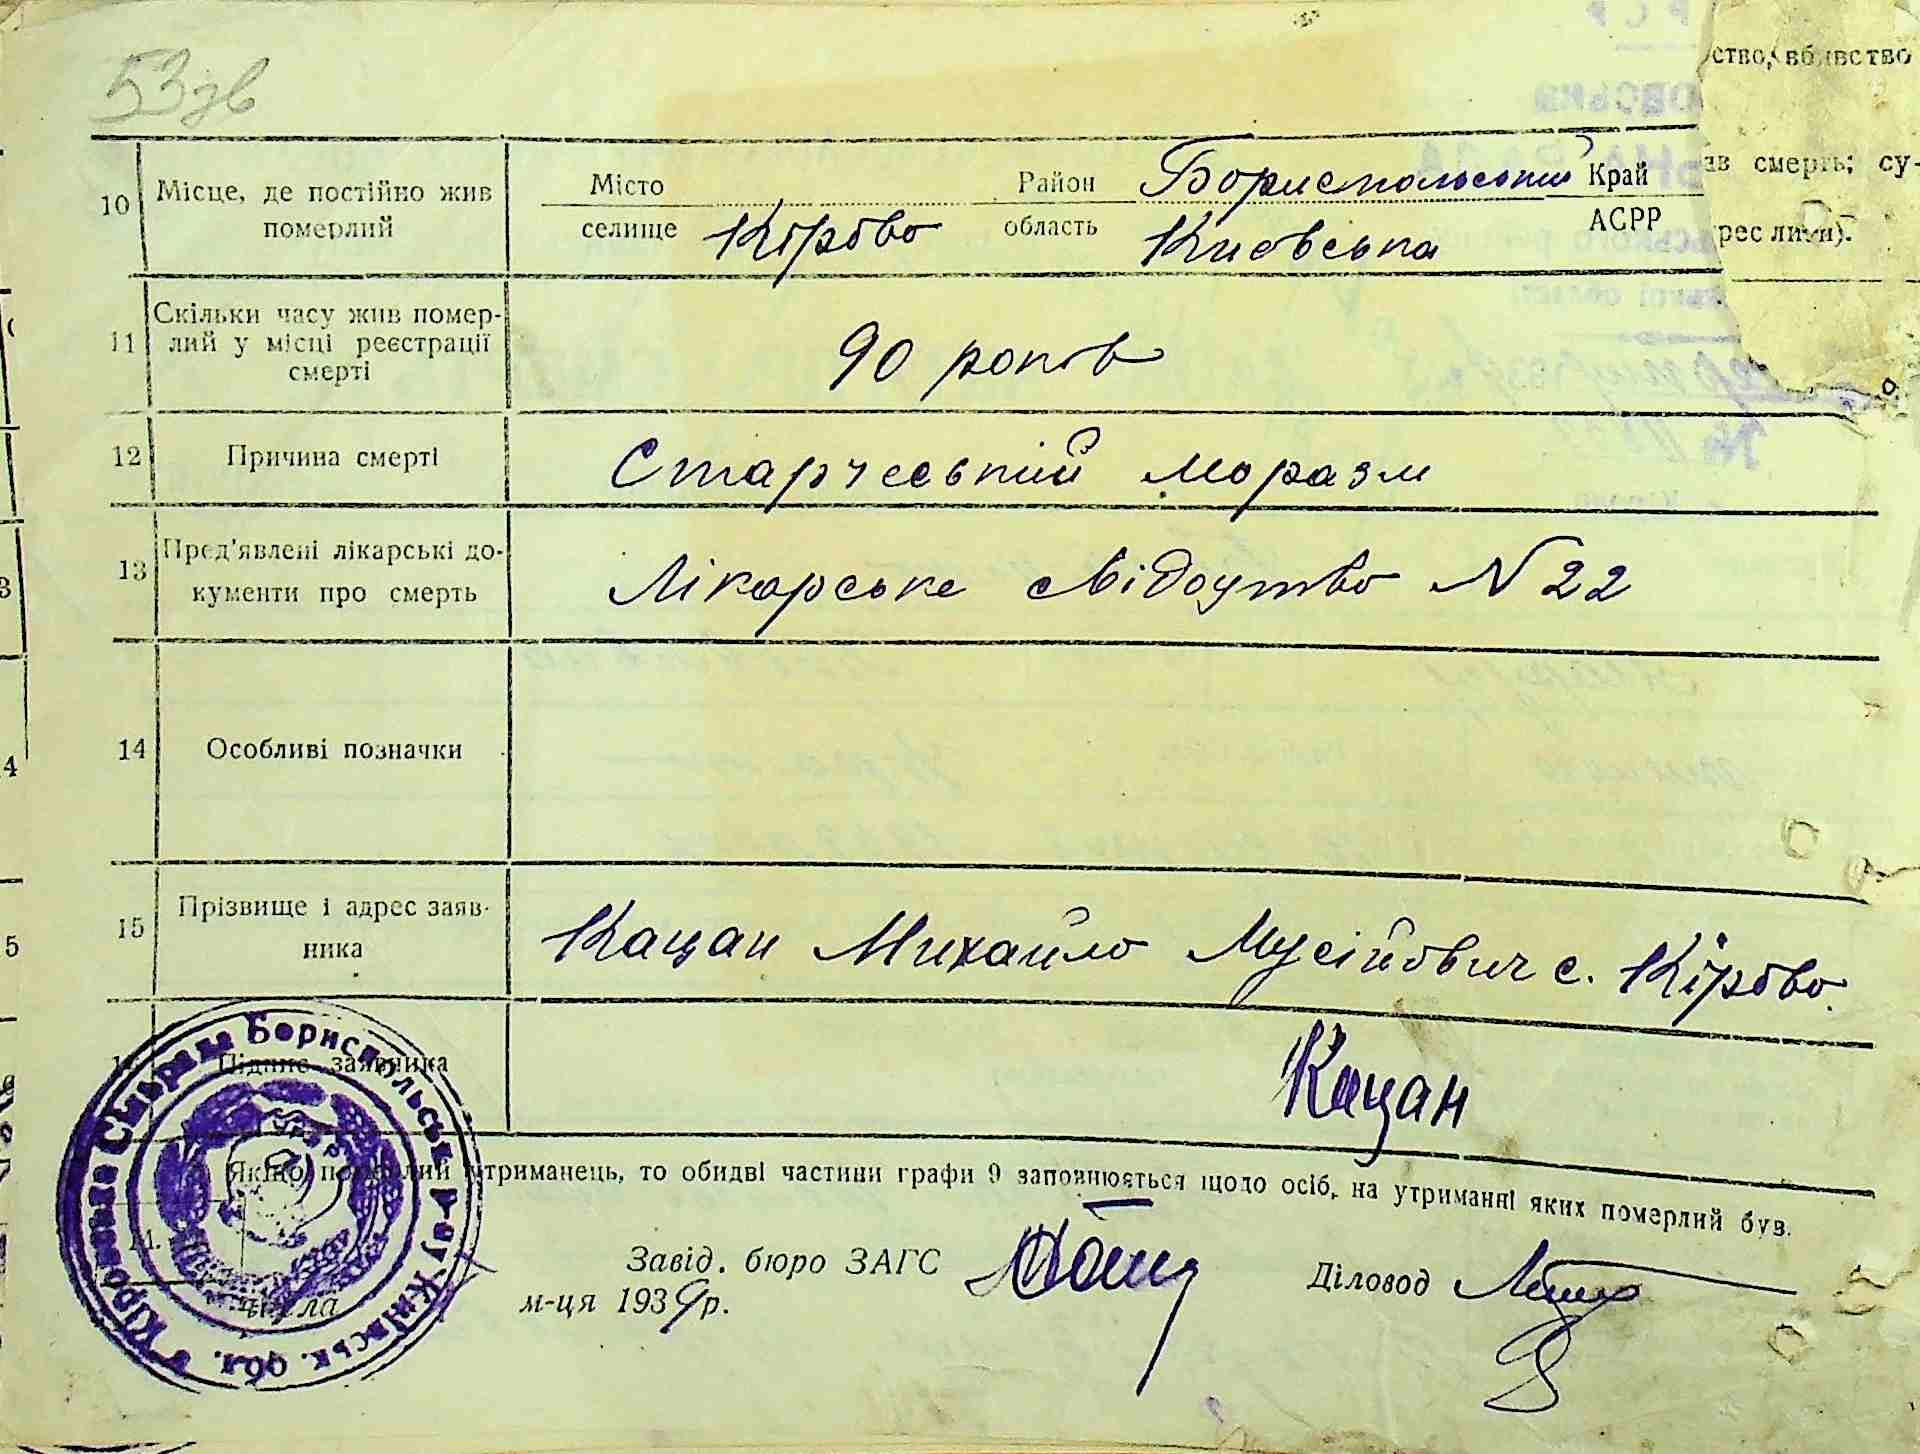 53зв
ство, вбивство
10 Місце, де постійно жив померлий
Місто Район Бориспольський Край
селище Кірово область Киевська АСРР
ав смерть; су-
рес лиш).
11 Скільки часу жив помер-
лий у місці реєстрації
смерті
90 років
12 Причина смерті Старчеський моразм
13 Пред'явлені лікарські до-
кументи про смерть
Лікарське свідоцтво N 22
14 Особливі позначки
15 Прізвище і адрес заяв-
ника
Кацан Михайло Мусійович с. Кірово.
Підпис заявника Кацан
Якщо померлий утриманець, то обидві частини графи 9 заповнюється щодо осіб, на утриманні яких померлий був.
Завід. бюро ЗАГС Діловод
числа м-ця 1939 р.
Кіровська Сільрада Бориспольськ. р-ну Київськ. обл.